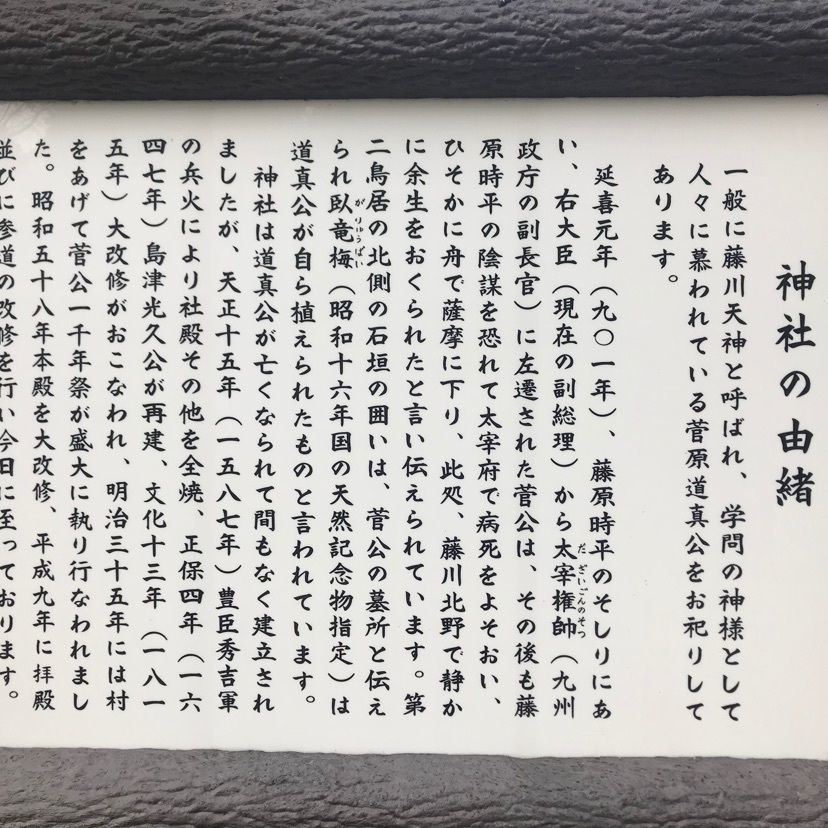 神社の由緒
一般に藤川天神と呼ばれ、学問の神様として
人々に慕われている菅原道真公をお祀りして
あります。
延喜元年（九〇一年）、藤原時平のそしりにあ
い、右大臣（現在の副総理）から太宰権帥（九州
だざいごんのそつ
政庁の副長官）に左遷された菅公は、その後も藤
原時平の陰謀を恐れて太宰府で病死をよそおい、
ひそかに舟で薩摩に下り、此処、藤川北野で静か
に余生をおくられたと言い伝えられています。第
二鳥居の北側の石垣の囲いは、菅公の墓所と伝え
られ臥竜梅（昭和十六年国の天然記念物指定）は
がりゅうばい
道真公が自ら植えられたものと言われています。
神社は道真公が亡くなられて間もなく建立され
ましたが、天正十五年（一五八七年）豊臣秀吉軍
の兵火により社殿その他を全焼、正保四年（一六
四七年）島津光久公が再建、文化十三年（一八一
五年）大改修がおこなわれ、明治三十五年には村
をあげて菅公一千年祭が盛大に執り行なわれまし
た。昭和五十八年本殿を大改修、平成九年に拝殿
並びに参道の改修を行い今日に至っております。